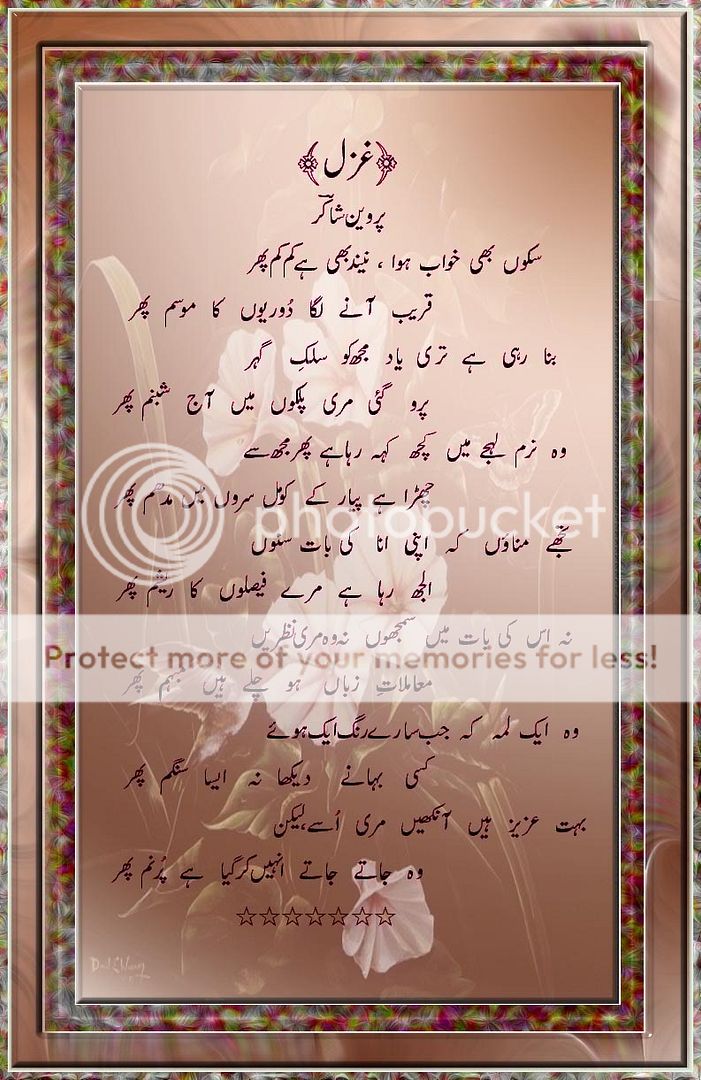 ﴿غزل﴾
پروین شاکرؔ
سکوں بھی خواب ہوا ، نیند بھی ہے کم کم پھر
قریب آنے لگا دُوریوں کا موسم پھر
بنا رہی ہے تری یاد مجھ کو سلکِ گہر
پرو گئی مری پلکوں میں آج شبنم پھر
وہ نرم لہجے میں کچھ کہہ رہا ہے پھر مجھ سے
چھڑا ہے پیار کے کومل سروں میں مدھم پھر
تجھے مناؤں کہ اپنی انا کی بات سنوں
الجھ رہا ہے مرے فیصلوں کا ریشم پھر
نہ اس کی بات میں سمجھوں نہ وہ مری نظریں
معاملاتِ زباں ہو چلے ہیں مبہم پھر
وہ ایک لمحہ کہ جب سارے رنگ ایک ہوئے
کسی بہانے دیکھا نہ ایسا سنگم پھر
بہت عزیز ہیں آنکھیں مری اُسے، لیکن
وہ جاتے جاتے انہیں کر گیا ہے پُرنم پھر
☆☆☆☆☆☆☆
photobucket
Protect more of your memories for less!